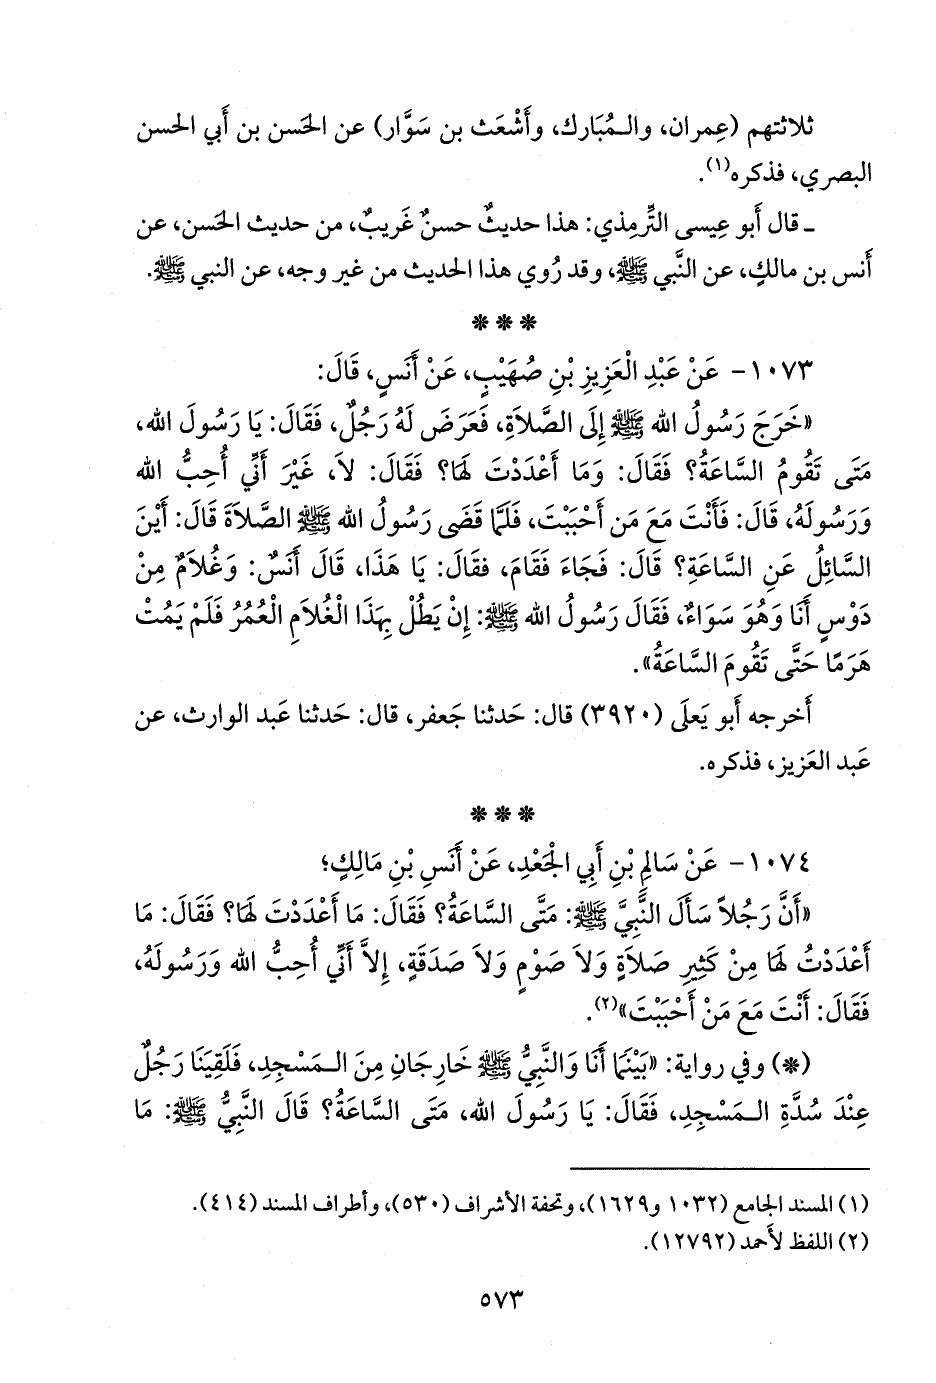 ثلاثتهم (عِمران، والـمُبَارك، وأَشْعَث بن سَوَّار) عن الحَسن بن أَبي الحَسن
البصري، فذكره(١).
ـ قال أَبو عِيسى التِّرمِذي: هذا حديثٌ حسنٌ غَريبٌ، من حديث الحَسن، عن
أَنس بن مالكٍ، عن النَّبي ﷺ، وقد رُوي هذا الحديث من غير وجه، عن النبي ﷺ.
* * *
١٠٧٣- عَنْ عَبْدِ الْعَزِيزِ بْنِ صُهَيْبٍ، عَنْ أَنَسٍ، قَالَ:
«خَرَجَ رَسُولُ الله ﷺ إِلَى الصَّلاَةِ، فَعَرَضَ لَهُ رَجُلٌ، فَقَالَ: يَا رَسُولَ الله،
مَتَى تَقُومُ السَّاعَةُ؟ فَقَالَ: وَمَا أَعْدَدْتَ لَهَا؟ فَقَالَ: لاَ، غَيْرَ أَنِّي أُحِبُّ الله
وَرَسُولَهُ، قَالَ: فَأَنْتَ مَعَ مَن أَحبَبْتَ، فَلَمَّا قَضَى رَسُولُ الله ﷺ الصَّلاَةَ قَالَ: أَيْنَ
السَّائِلُ عَنِ السَّاعَةِ؟ قَالَ: فَجَاءَ فَقَامَ، فقَالَ: يَا هَذَا، قَالَ أَنَسٌ: وَغُلاَمٌ مِنْ
دَوْسٍ أَنَا وَهُوَ سَوَاءٌ، فَقَالَ رَسُولُ الله ﷺ: إِنْ يَطُلْ بِهَذَا الْغُلاَمِ الْعُمُرُ فَلَمْ يَمُتْ
هَرَمًا حَتَّى تَقُومَ السَّاعَةُ».
أَخرجه أَبو يَعلَى (٣٩٢٠) قال: حَدثنا جَعفر، قال: حَدثنا عَبد الوارث، عن
عَبد العَزيز، فذكره.
* * *
١٠٧٤- عَنْ سَالِمِ بْنِ أَبِي الْجَعْدِ، عَنْ أَنَسِ بْنِ مَالِكٍ؛
«أَنَّ رَجُلاً سَأَلَ النَّبِيَّ ﷺ: مَتَى السَّاعَةُ؟ فَقَالَ: مَا أَعْدَدْتَ لَهَا؟ فَقَالَ: مَا
أَعْدَدْتُ لَهَا مِنْ كَثِيرِ صَلاَةٍ وَلاَ صَوْمٍ وَلاَ صَدَقَةٍ، إِلاَّ أَنِّي أُحِبُّ الله وَرَسُولَهُ،
فَقَالَ: أَنْتَ مَعَ مَنْ أَحْبَبْتَ»(٢).
(*) وفي رواية: «بَيْنَمَا أَنَا وَالنَّبِيُّ ﷺ خَارِجَانِ مِنَ الـمَسْجِدِ، فَلَقِيَنَا رَجُلٌ
عِنْدَ سُدَّةِ الـمَسْجِدِ، فَقَالَ: يَا رَسُولَ الله، مَتَى السَّاعَةُ؟ قَالَ النَّبِيُّ ﷺ: مَا
(١) المسند الجامع (١٠٣٢ و١٦٢٩)، وتحفة الأشراف (٥٣٠)، وأطراف المسند (٤١٤).
(٢) اللفظ لأحمد (١٢٧٩٢).
٥٧٣